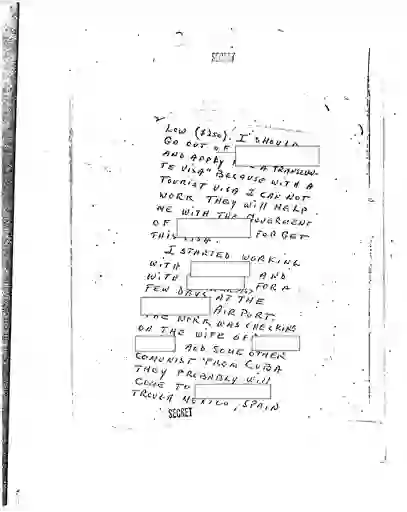 SECRET
LOW ($250). I SHOULD
GO OUT OF
AND APPLY A TRANSEUN-
TE VISA" BECAUSE WITH A
TOURIST VISA I CAN NOT
WORK THEY WILL HELP
ME WITH THE GOVERMENT
OF FOR GET
THIS VISA.
I STARTED WORKING
WITH
WITH AND
FOR A
FEW DAYS AT THE
AIRPORT.
THE WORK WAS CHECKING
ON THE WIFE OF
AND SOME OTHER
COMUNIST FROM CUBA
THEY PROBABLY WILL
COME TO
TROUGH MEXICO, SPAIN
SECRET